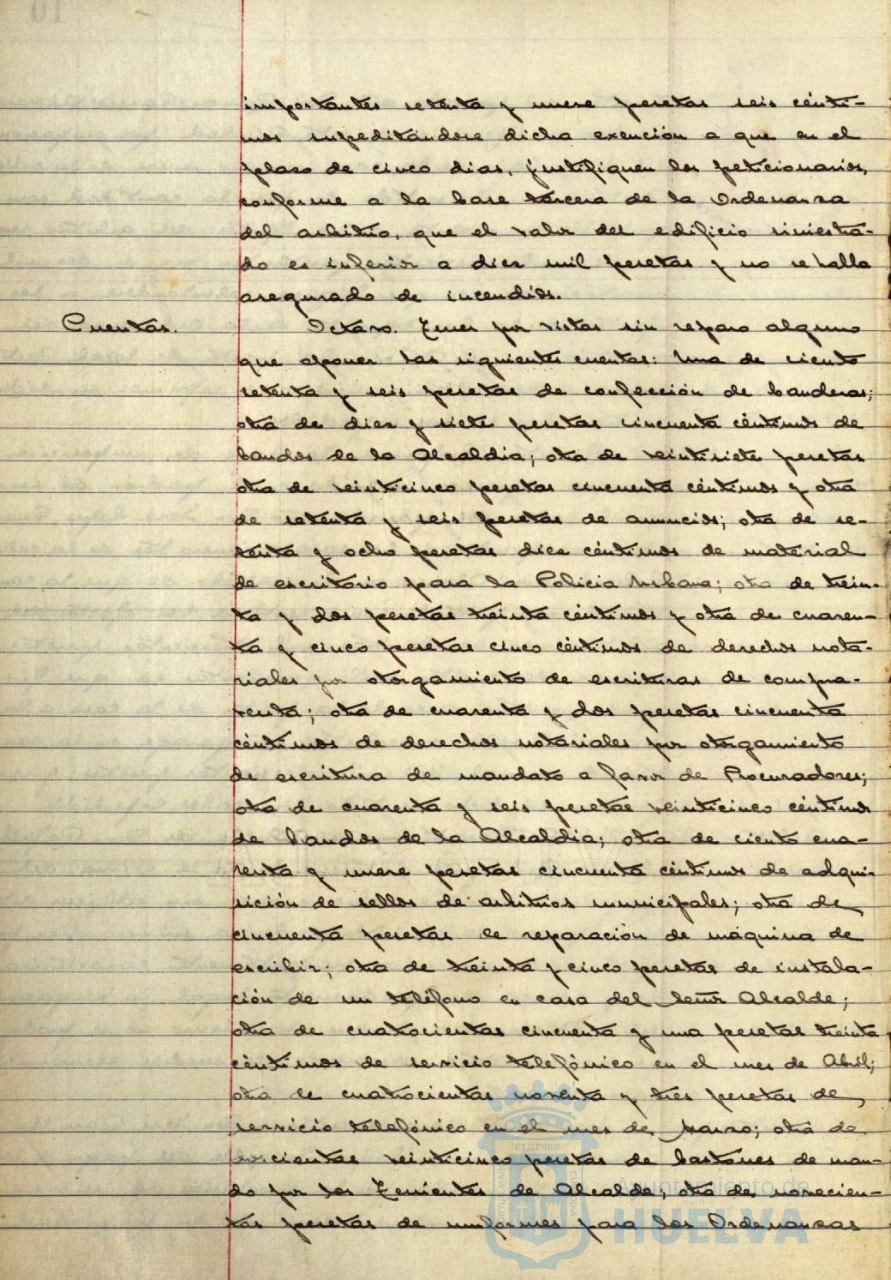 importantes setenta y nueve pesetas seis cénti-
mos supeditándose dicha exención a que en el
plazo de cinco dias, justifiquen los peticionarios,
conforme a la base tercera de la Ordenanza
del arbitrio, que el valor del edificio siniestra-
do es inferior a diez mil pesetas y no se halla
asegurado de incendios.
Cuentas. Octavo. Tener por vistas sin reparo alguno
que oponer las siguientes cuentas: Una de ciento
setenta y seis pesetas de confección de banderas;
otra de diez y siete pesetas cincuenta céntimos de
bandos de la Alcaldia; otra de veintisiete pesetas
otra de veinticinco pesetas cincuenta céntimos y otra
de setenta y seis pesetas de anuncios; otra de se-
tenta y ocho pesetas diez céntimos de material
de escritorio para la Policia Urbana; otra de trein-
ta y dos pesetas treinta céntimos y otra de cuaren-
ta y cinco pesetas cinco céntimos de derechos nota-
riales por otorgamiento de escrituras de compra-
venta; otra de cuarenta y dos pesetas cincuenta
céntimos de derechos notariales por otorgamiento
de escritura de mandato a favor de Procuradores;
otra de cuarenta y seis pesetas veinticinco céntimos
de bandos de la Alcaldia; otra de ciento cua-
renta y nueve pesetas cincuenta céntimos de adqui-
sición de sellos de arbitrios municipales; otra de
cincuenta pesetas de reparación de máquina de
escribir; otra de treinta y cinco pesetas de instala-
ción de un teléfono en casa del Señor Alcalde;
otra de cuatrocientas cincuenta y una pesetas treinta
céntimos de servicio telefónico en el mes de Abril;
otra de cuatrocientas noventa y tres pesetas de
servicio telefónico en el mes de Marzo; otra de
veinticinco pesetas de bastones de man-
do por los Tenientes de Alcalde; otra de novecien-
tas pesetas de uniformes para los Ordenanzas
Ayuntamiento de
HUELVA